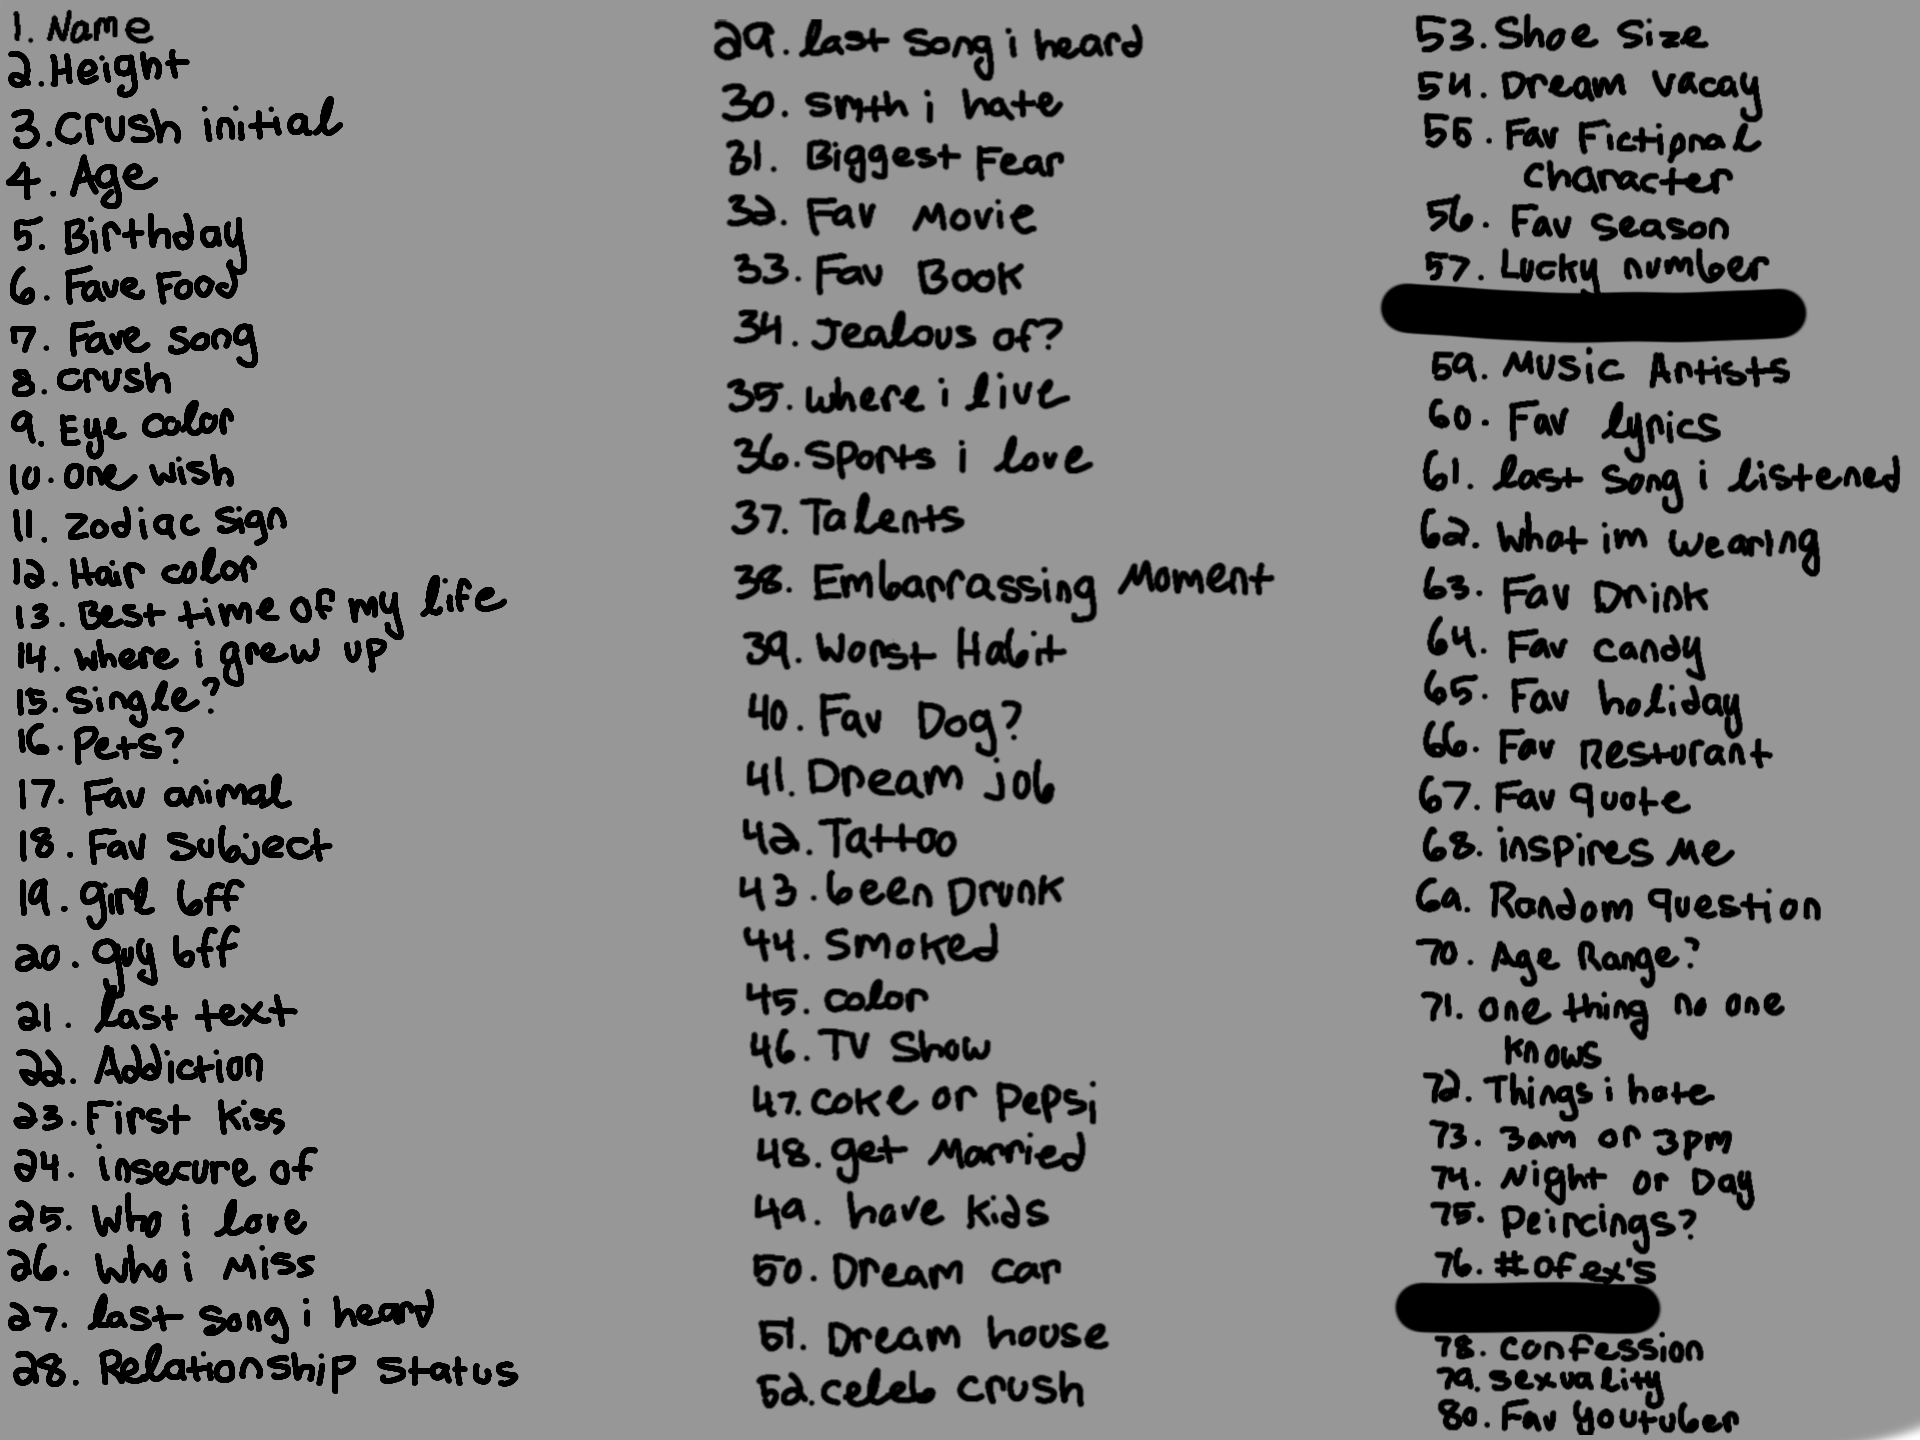 1. Name
2. Height
3. Crush initial
4. Age
5. Birthday
6. Fave Food
7. Fave song
8. crush
9. Eye color
10. one wish
11. zodiac sign
12. Hair color
13. Best time of my life
14. where i grew up
15. Single?
16. Pets?
17. Fav animal
18. Fav subject
19. girl bff
20. guy bff
21. last text
22. Addiction
23. First kiss
24. insecure of
25. Who i love
26. Who i Miss
27. last song i heard
28. Relationship status
29. last song i heard
30. smth i hate
31. Biggest Fear
32. Fav Movie
33. Fav Book
34. Jealous of?
35. where i live
36. Sports i love
37. Talents
38. Embarrassing Moment
39. Worst Habit
40. Fav Dog?
41. Dream job
42. Tattoo
43. been Drunk
44. Smoked
45. color
46. TV Show
47. coke or Pepsi
48. get Married
49. have kids
50. Dream car
51. Dream house
52. celeb crush
53. Shoe Size
54. Dream vacay
55. Fav Fictional
character
56. Fav season
57. Lucky number
59. Music Artists
60. Fav lyrics
61. last song i listened
62. What im wearing
63. Fav Drink
64. Fav candy
65. Fav holiday
66. Fav Resturant
67. Fav quote
68. inspires Me
69. Random question
70. Age Range?
71. one thing no one
knows
72. Things i hate
73. 3am or 3pm
74. Night or Day
75. Peircings?
76. # of ex's
78. confession
79. sexuality
80. Fav youtuber